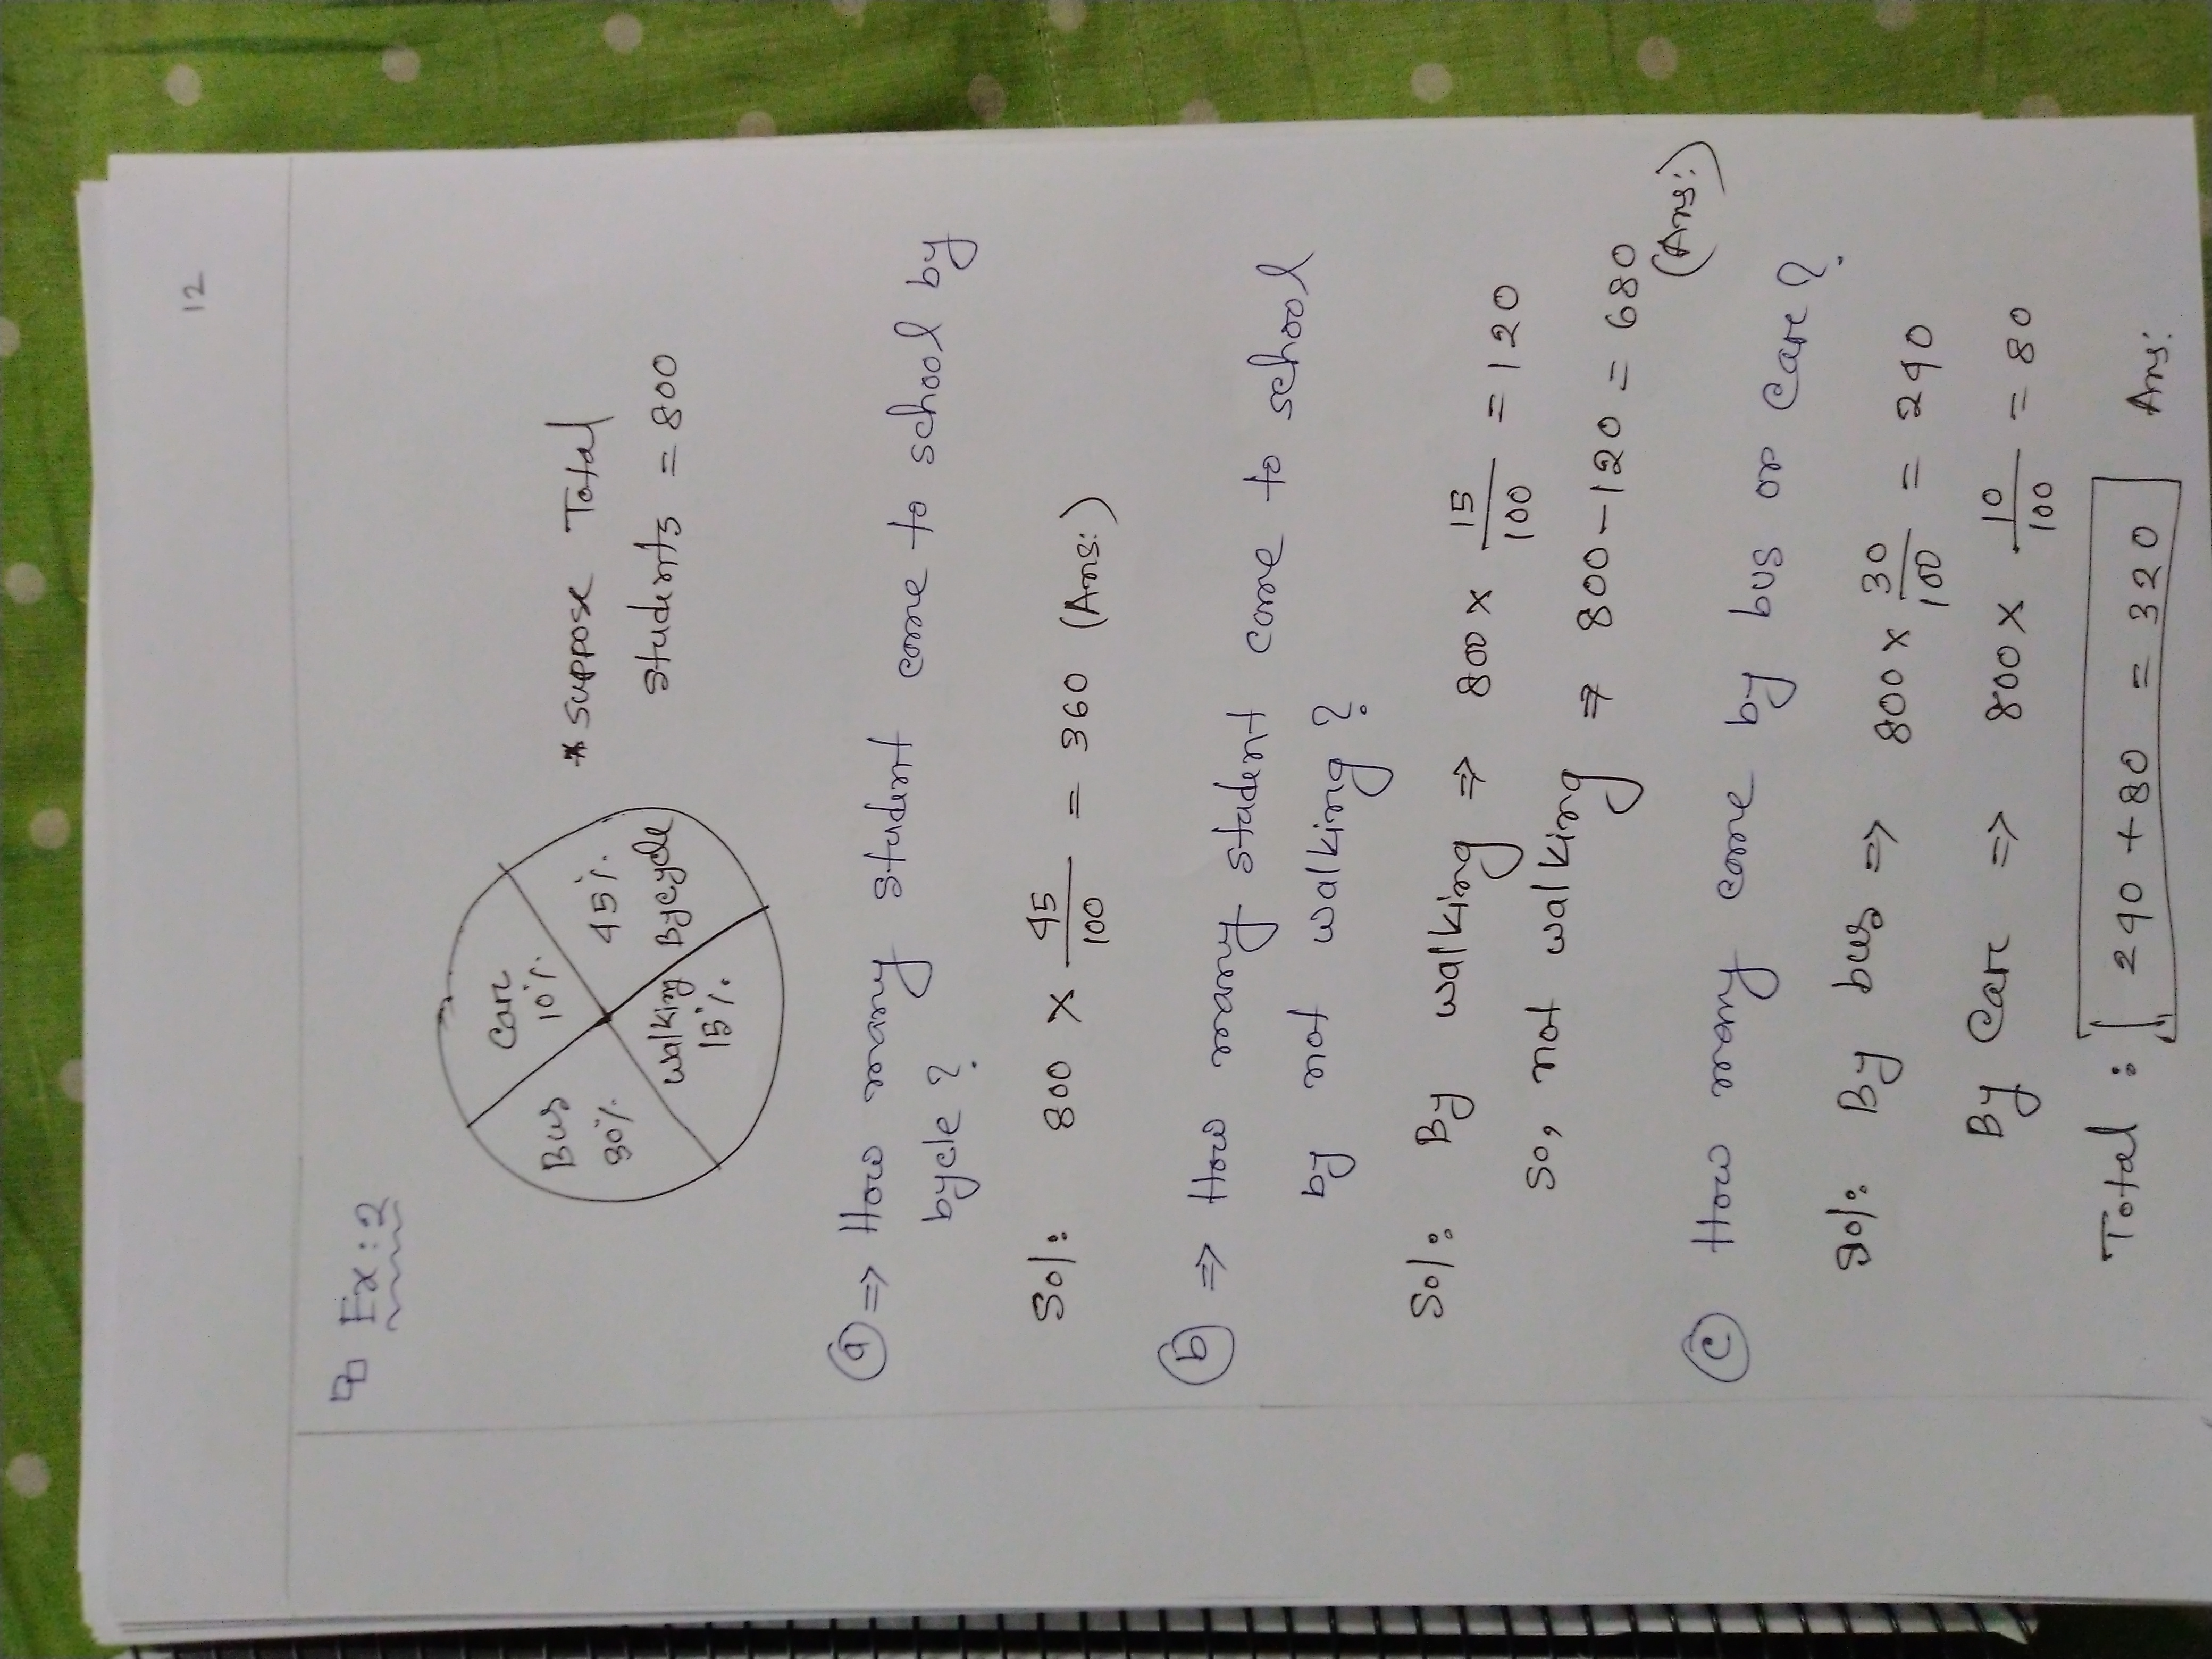 12
Ex: 2
Bus
30%.
Car
10%.
walking
15%.
45%.
Bycycle
* Suppose Total
students = 800
a ⇒ How many student come to school by
bycle ?
Sol: 800 × 45/100 = 360 (Ans:)
b ⇒ How many student come to school
by not walking ?
Sol: By walking ⇒ 800 × 15/100 = 120
So, not walking ⇒ 800 - 120 = 680
(Ans:)
c How many come by bus or Car ?
Sol: By bus ⇒ 800 × 30/100 = 240
By Car ⇒ 800 × 10/100 = 80
Total : 240 + 80 = 320 Ans: